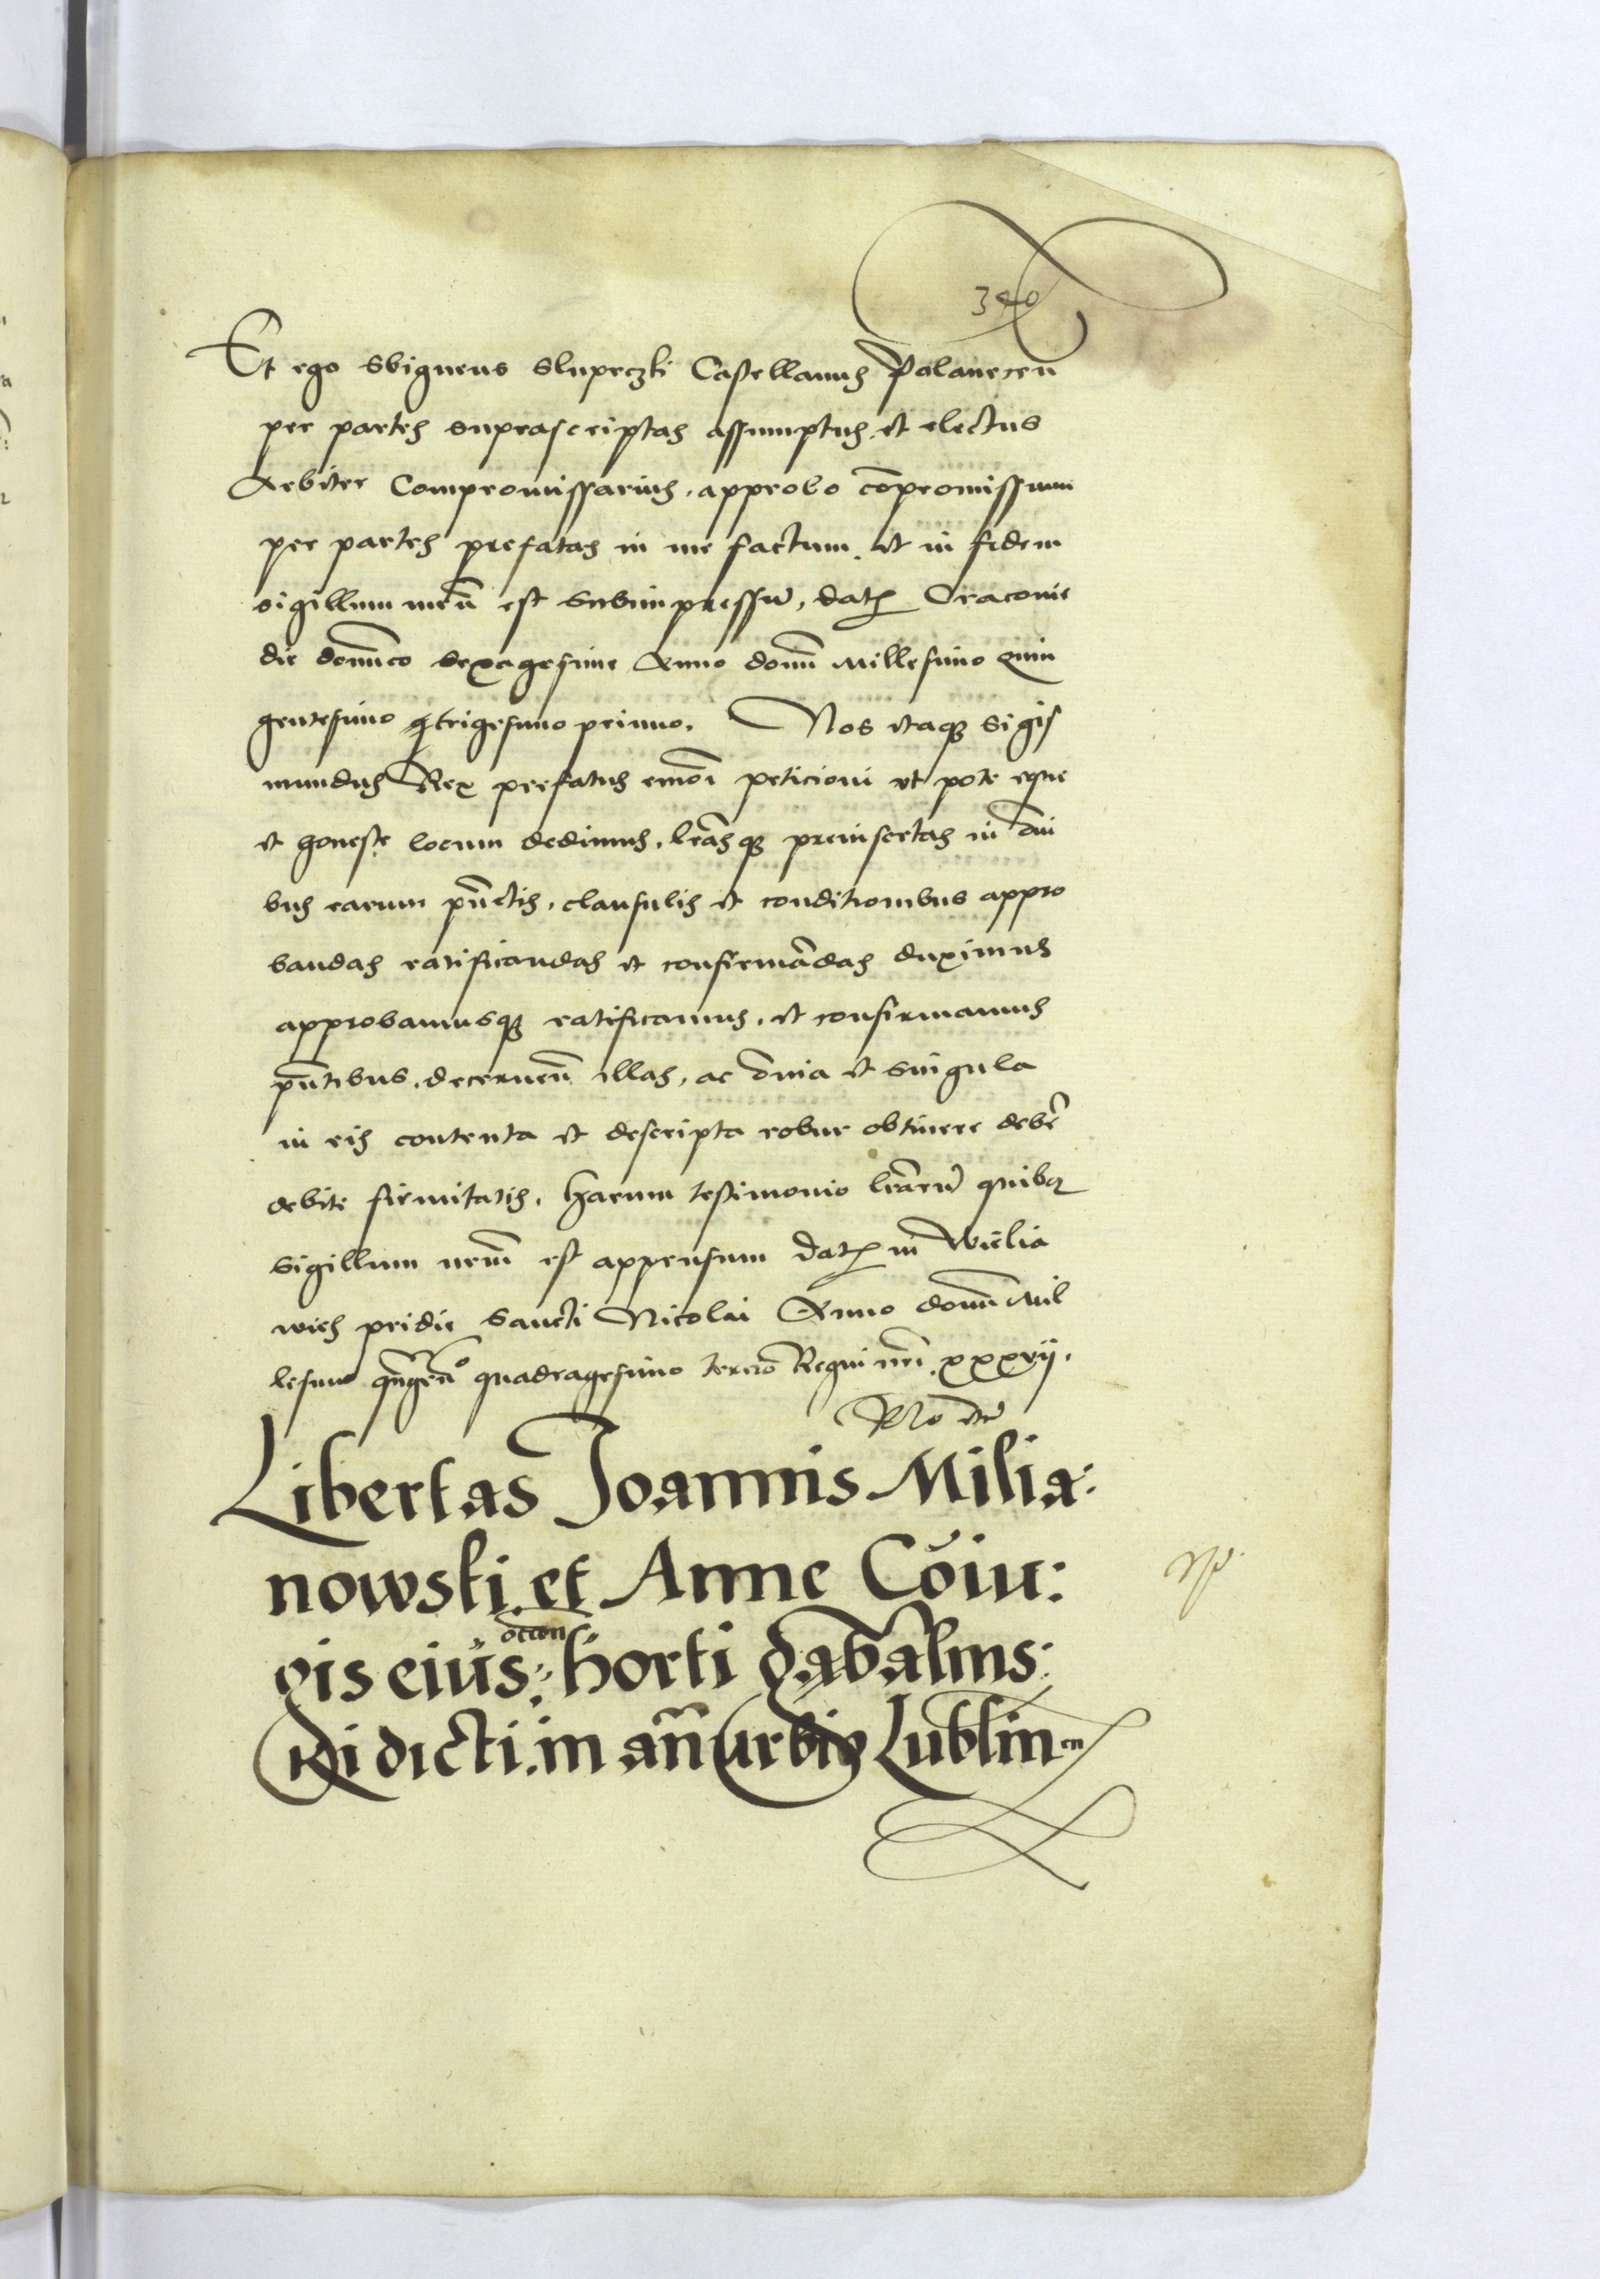 340
Et ego Sbigneus Slupeczki Castellanus Polanecen̄
per partes suprascriptas assumptus et electus
Arbiter Compromissarius, approbo cōpromissum
per partes prefatas in me factum, et in fidem
sigillum meū est subimpressū, dat̄ Cracovie
die domīco sexagesime Anno domī Millesimo quin
gentesimo trigesimo primo. Nos itaq̄ȝ Sigis
mundus Rex prefatus peticioni ut pote eque
et honeste locum dedimus, lr̄asq̄ȝ preinsertas in ōni
bus earum pūctis, clausulis et conditionibus appro
bandas ratificandas et confirmādas duximus
approbamusq̄ȝ ratificamus, et confirmamus
pn̄tibus, decernen̄ illas, ac ōnia et singula
in eis contenta et descripta robur obtinere debē
debite firmitatis, Harum testimonio lr̄arū quibȝ
sigillum nr̄m est appensum Dat̄ in Wielia
wies pridie Sancti Nicolai Anno domī Mil
lesimo qn̄gen̄o quadragesimo tercio Regni nr̄i xxxvij.
Rlo etc̄
Libertas Joannis Milia:
nowski et Anne Cōiu:
gis eius: horti
dicti in an̄ urbio Lublin en̄